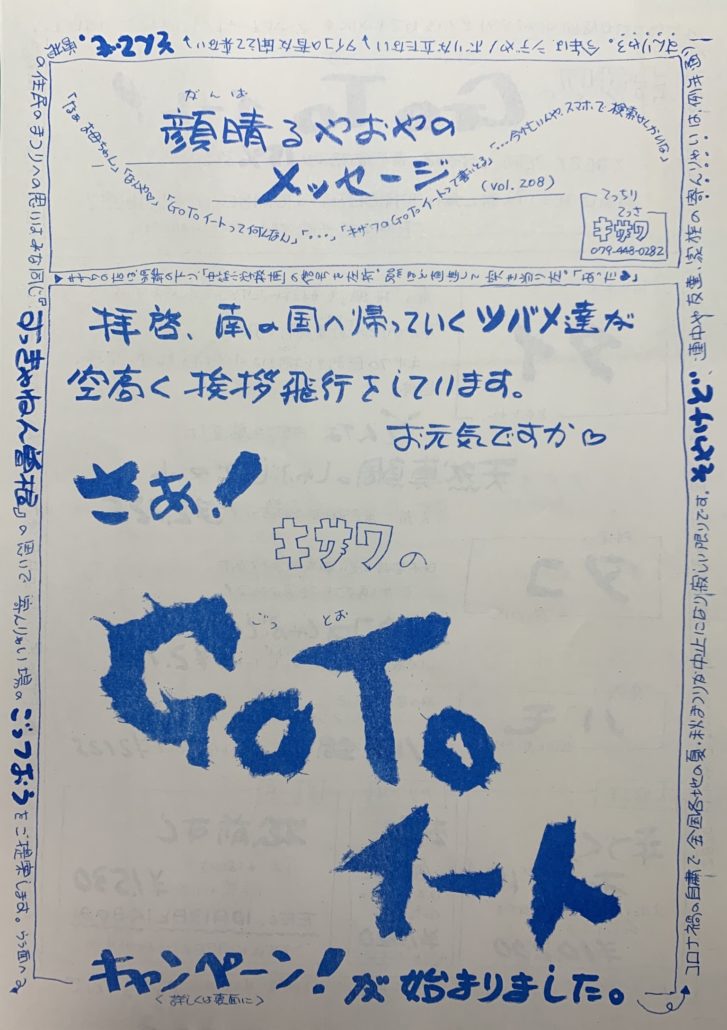 がんば
顔晴るやおやの
メッセージ
(vol.208)
「なぁ お母ちゃん」「なんやの」「GoToイートって何なん」「…」「キザワのGoToイートって書いとる」「…今忙しいんや、スマホで検索せんかいな」
てっちり
てっさ
キサワ
079-448-0282
拝啓、南の国へ帰っていくツバメ達が
空高く挨拶飛行をしています。
お元気ですか♡
さあ!
キザワの
ごっ とお
GoTo
イート
キャンペーン!が始まりました。
<詳しくは裏面に>
コロナ禍の自粛で全国各地の夏・秋まつりが中止になり寂しい限りです。それでも…
連中や友達、家族の
今年はシデやノボリが立たない
タイコの音は聞こえて来ない
それでも。
の住民のまつりへの思いはみな同じ
の思いで
ごっつおうをご提案します。